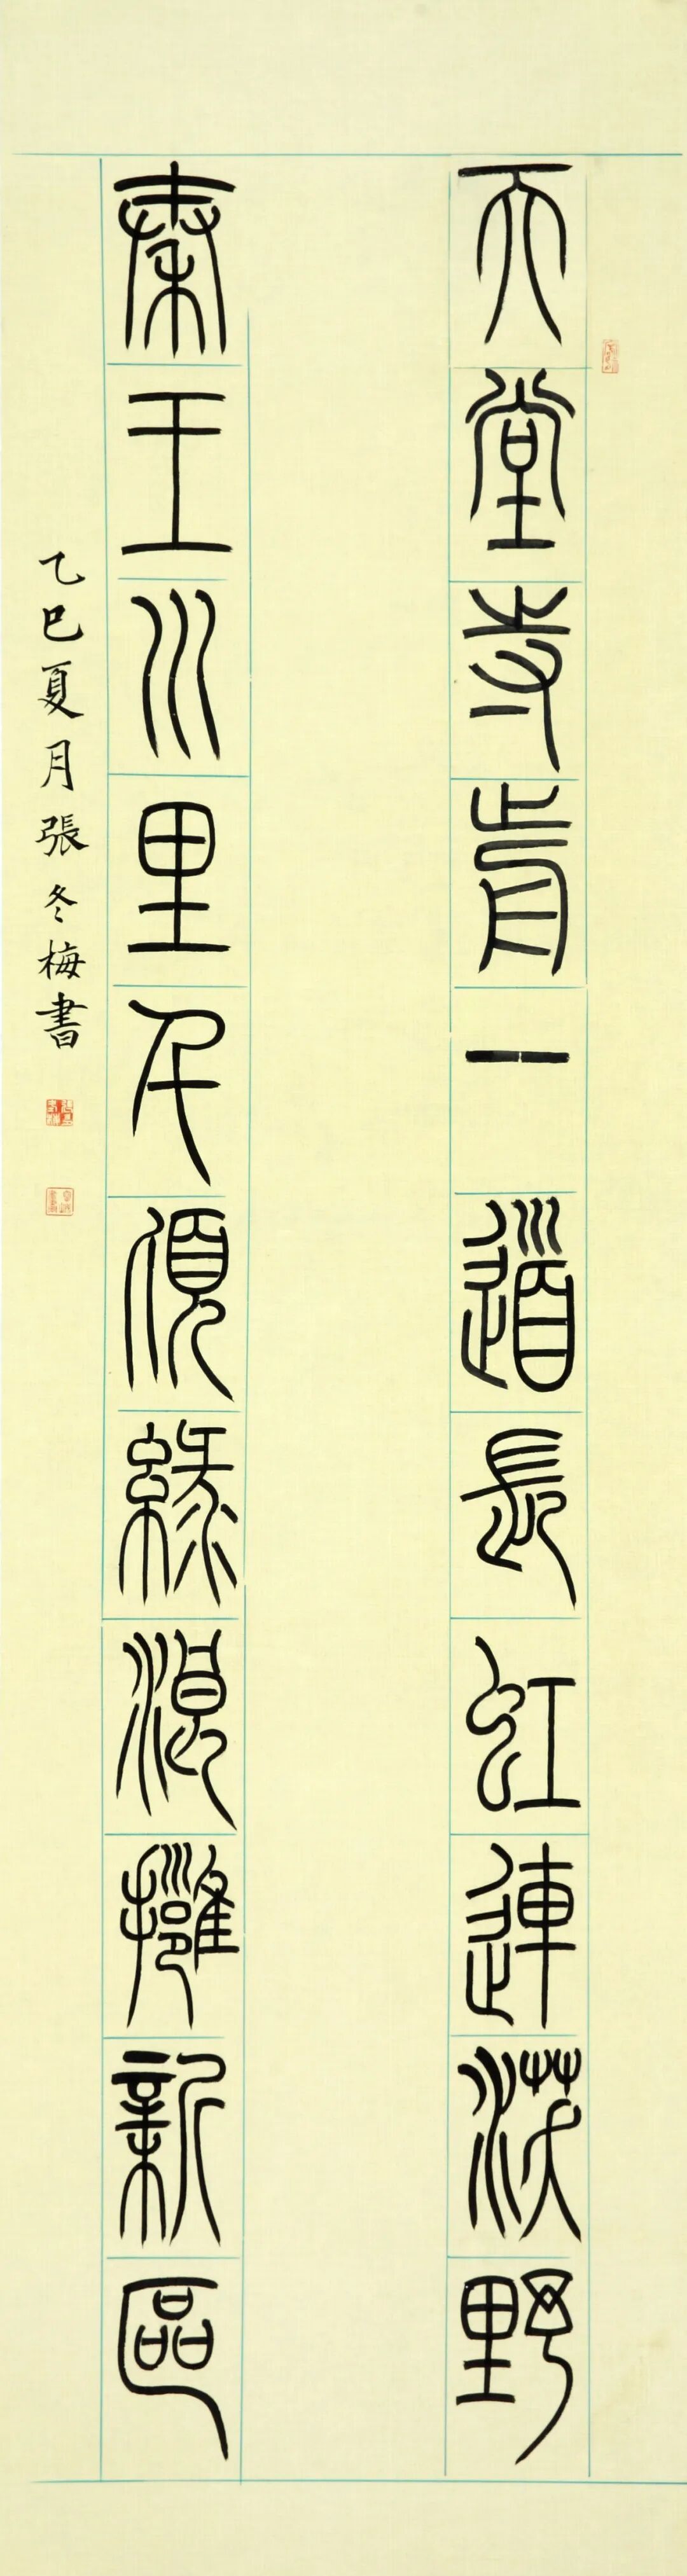 天堂寺前一道長虹連沃野
秦王川里千頃緑浪擁新區
乙巳夏月張冬梅書